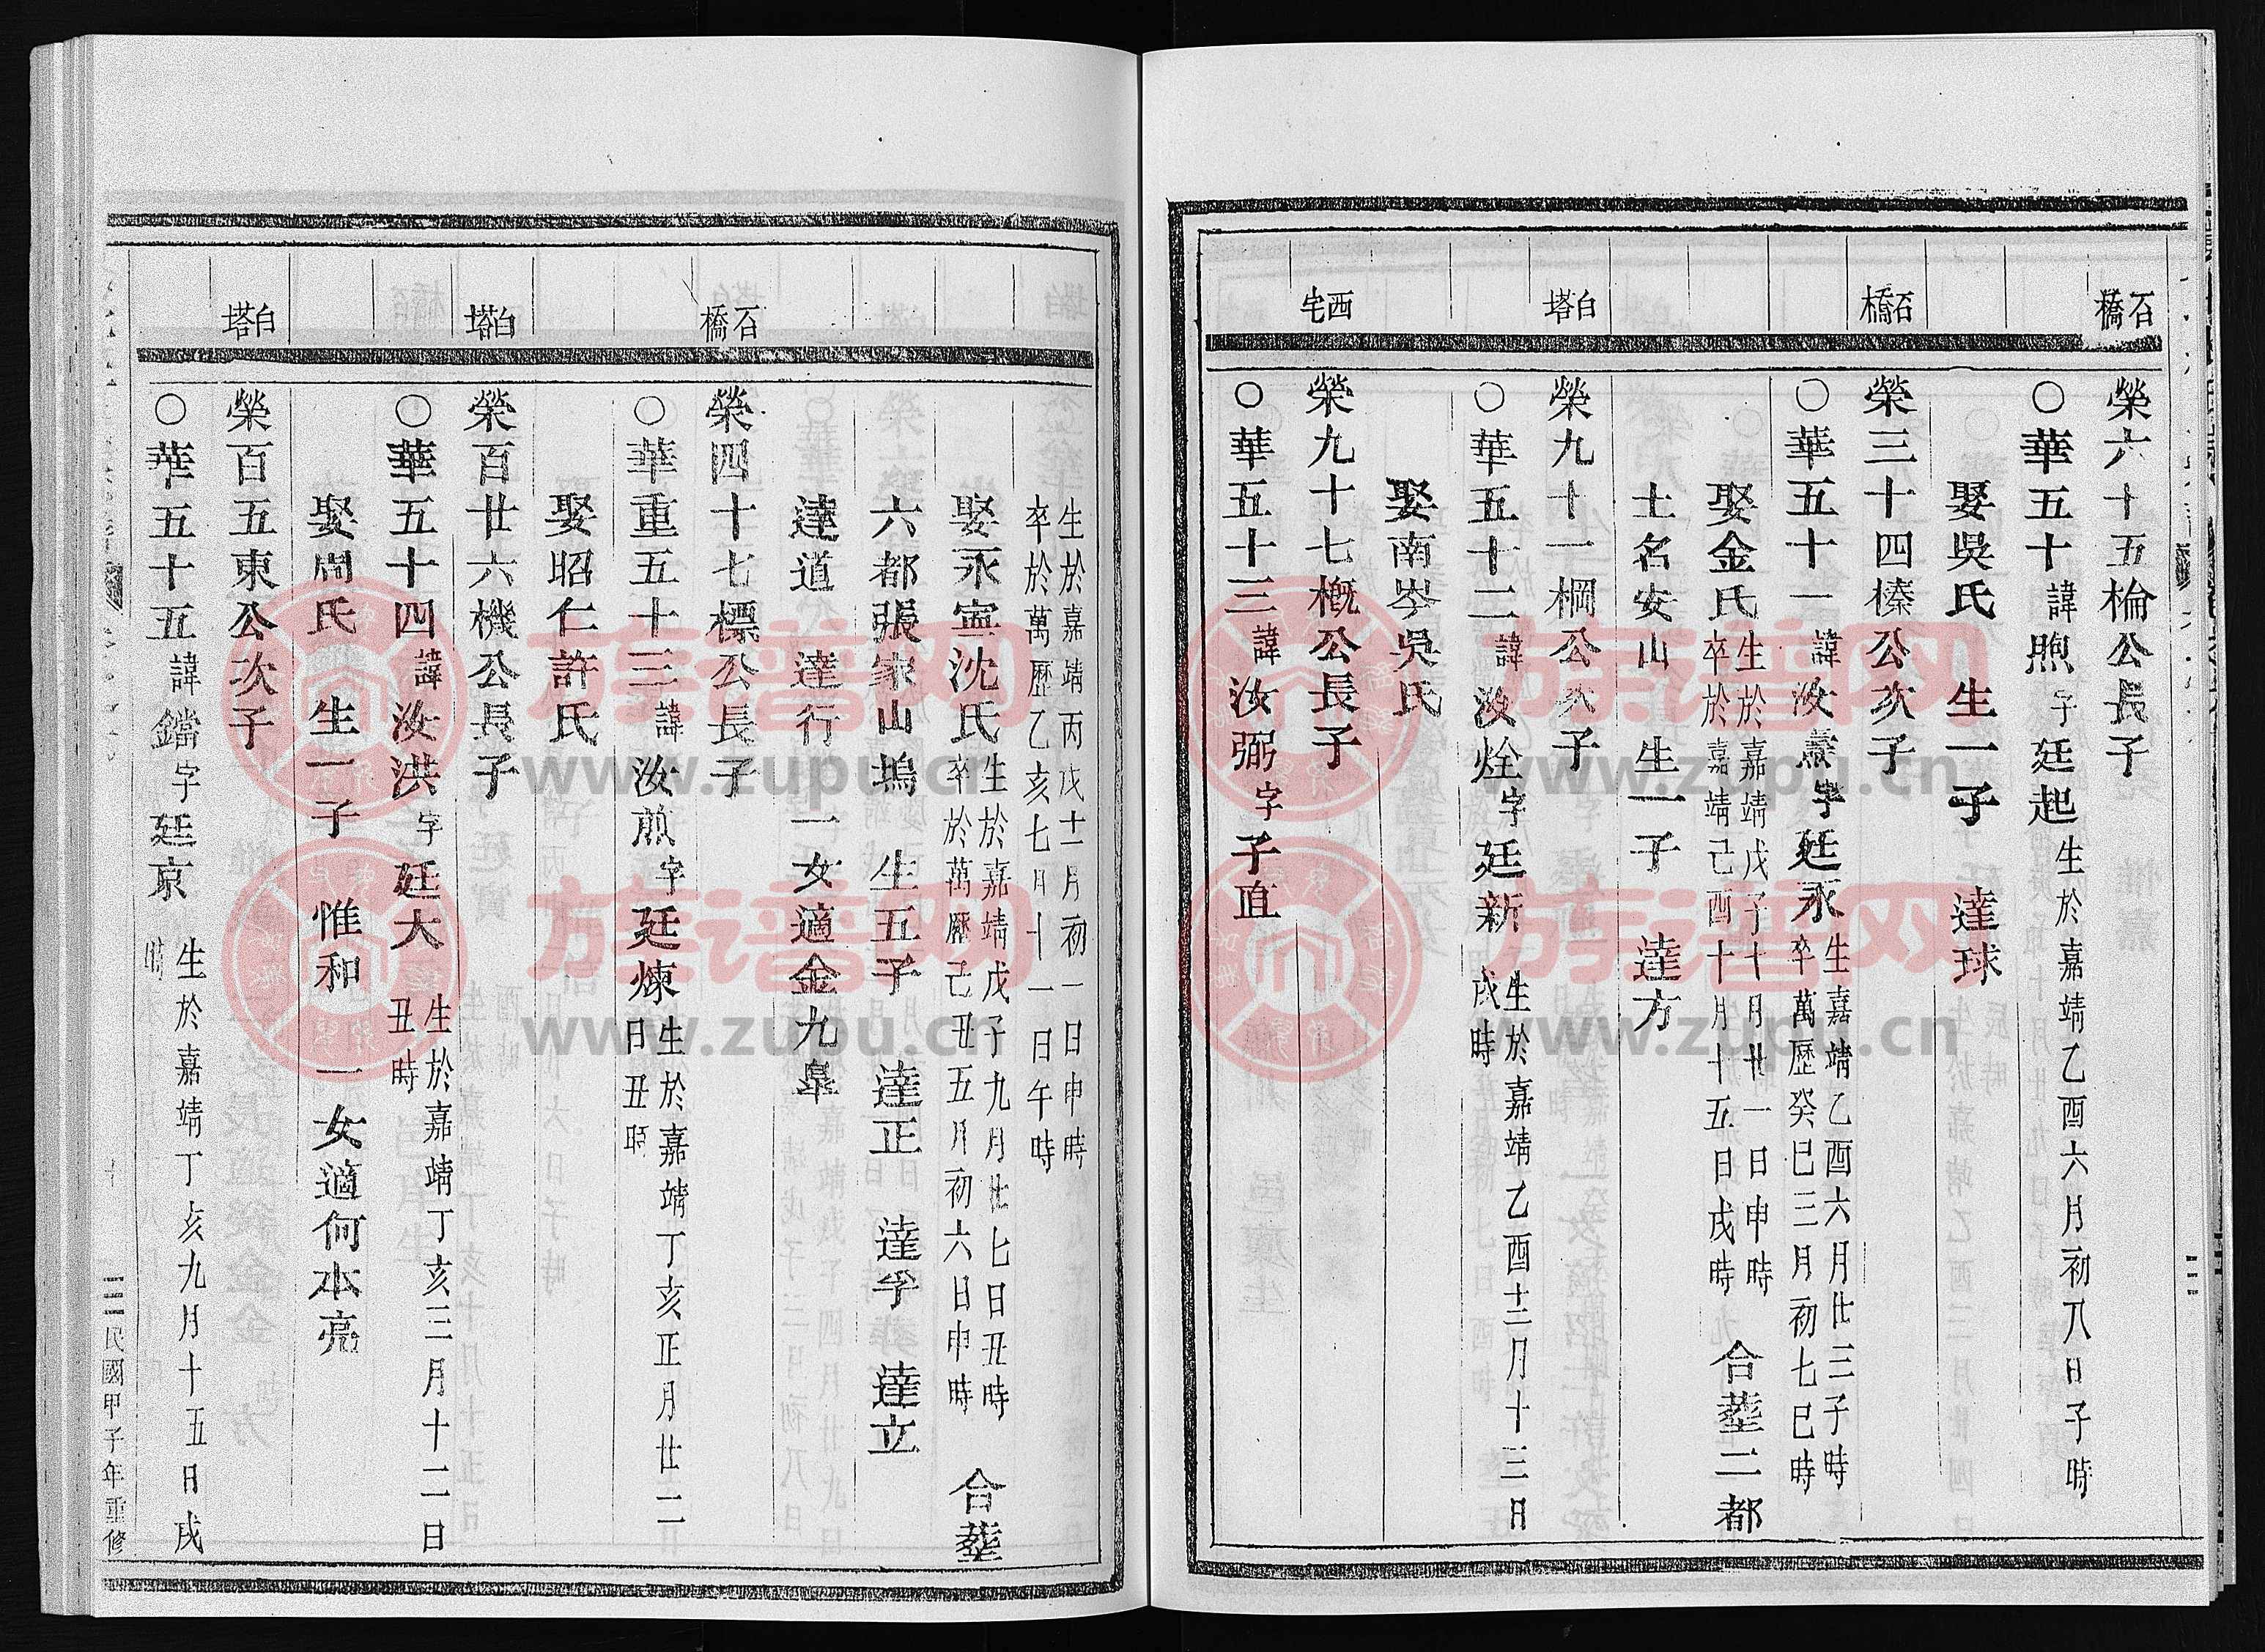 石橋
榮六十五棆公長子
○華五十諱煦字廷起生於嘉靖乙酉六月初八日子時
娶吳氏 生一子 達球
石橋
榮三十四榛公次子
○華五十一諱汝字廷永生嘉靖乙酉六月廿三子時
卒萬歷癸巳三月初七巳時
娶金氏生於嘉靖戊子十月廿一日申時
卒於嘉靖己酉十月十五日戌時 合塟二都
土名安山 生一子 達方
白塔
榮九十一棡公次子
○華五十二諱汝烇字廷新生於嘉靖乙酉十二月十三日
戌時
娶南岑吳氏
西宅
榮九十七概公長子
○華五十三諱汝弼字子直
生於嘉靖丙戌十一月初一日申時
卒於萬歷乙亥七月十一日午時
娶永寧沈氏生於嘉靖戊子九月廿七日丑時
卒於萬歷己丑五月初六日申時 合塟
六都張家山塢 生五子 達正 達孚 達立
達道 達行 一女適金九皐
石橋
榮四十七標公長子
○華重五十三諱汝煎字廷煉生於嘉靖丁亥正月廿二
日丑時
娶昭仁許氏
白塔
榮百廿六機公長子
○華五十四諱汝洪字廷大生於嘉靖丁亥三月十二日
丑時
娶周氏 生一子 惟和 一女適何本亮
白塔
榮百五東公次子
○華五十五諱鐺字廷京生於嘉靖丁亥九月十五日戌
時
民國甲子年重修
族谱网
www.zupu.cn
族谱网
www.zupu.cn
族谱网
www.zupu.cn
族谱网
www.zupu.cn